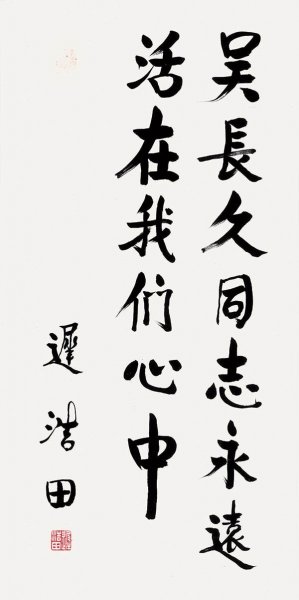 吴長久同志永遠
活在我们心中
遲浩田